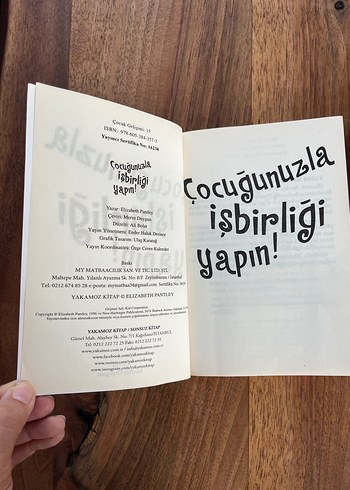 Çocuk Gelişimi: 15
ISBN: 978-605-384-357-3
Yayıncı Sertifika No: 16238
Çocuğunuzla
işbirliği
yapın!
Yazar: Elizabeth Pantley
Çeviri: Merve Duygun
Düzelti: Ali Bolat
Yayın Yönetmeni: Ender Haluk Derince
Grafik Tasarım: Ulaş Karataş
Yayın Koordinatörü: Özge Ceren Kalender
Baskı
MY MATBAACILIK SAN. VE TİC. LTD. ŞTİ.
Maltepe Mah. Yılanlı Ayazma Sk. No: 8/F Zeytinburnu / İstanbul
Tel: 0212 674 85 28 e-posta: mymatbaa34@gmail.com Sertifika No:
YAKAMOZ KİTAP © ELIZABETH PANTLEY
Copyright © Elizabeth Pantley, 1996
YAKAMOZ KİTAP / SONSUZ KİTAP
Gürsel Mah. Alaybey Sk. No: 7/1 Kağıthane/İSTANBUL
Tel: 0212 222 72 25 Faks: 0212 222 72 35
www.yakamoz.com.tr / info@yakamoz.com.tr
www.facebook.com/yakamozkitap
www.twitter.com/yakamozkitap
www.instagram.com/yakamozkitap
Çocuğunuzla
işbirliği
yapın!